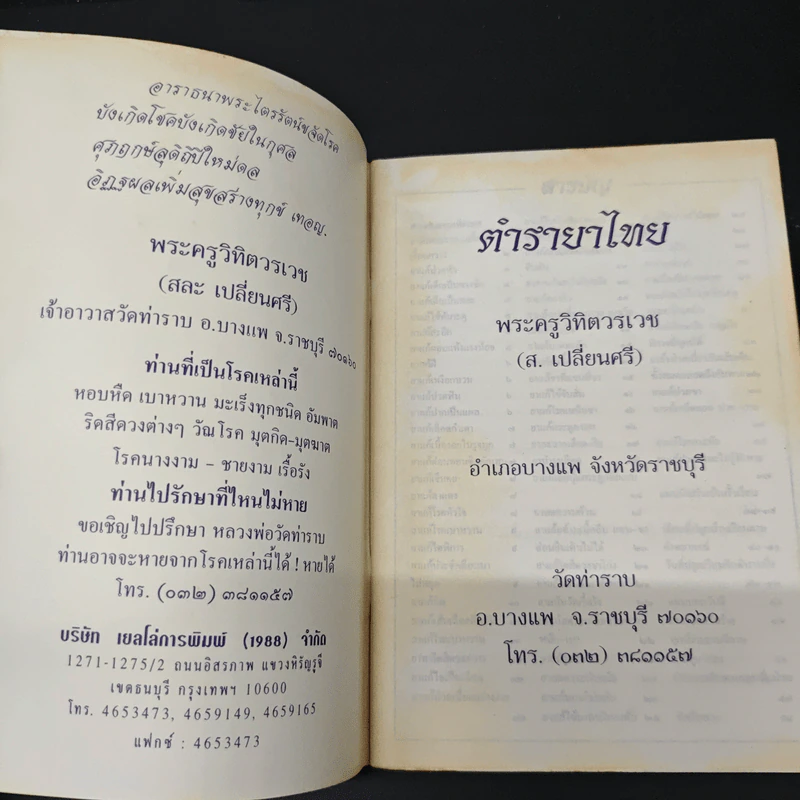 อาราธนาพระไตรรัตน์ขจัดโรค
บังเกิดโชคบังเกิดชัยในกุศล
ศุภฤกษ์สุดิถีปีใหม่ดล
อิฏฐผลเพิ่มสุขสร่างทุกข์ เทอญ.
พระครูวิทิตวรเวช
(สละ เปลี่ยนศรี)
เจ้าอาวาสวัดท่าราบ อ.บางแพ จ.ราชบุรี ๗๐๑๖๐
ท่านที่เป็นโรคเหล่านี้
หอบหืด เบาหวาน มะเร็งทุกชนิด อัมพาต
ริดสีดวงต่างๆ วัณโรค มุตกิด-มุตฆาต
โรคนางงาม - ชายงาม เรื้อรัง
ท่านไปรักษาที่ไหนไม่หาย
ขอเชิญไปปรึกษา หลวงพ่อวัดท่าราบ
ท่านอาจจะหายจากโรคเหล่านี้ได้ ! หายได้
โทร. (๐๓๒) ๓๘๑๑๕๗
บริษัท เยลโล่การพิมพ์ (1988) จำกัด
1271-1275/2 ถนนอิสรภาพ แขวงหิรัญรูจี
เขตธนบุรี กรุงเทพฯ 10600
โทร. 4653473, 4659149, 4659165
แฟกซ์ : 4653473
ตำรายาไทย
พระครูวิทิตวรเวช
(ส. เปลี่ยนศรี)
อำเภอบางแพ จังหวัดราชบุรี
วัดท่าราบ
อ.บางแพ จ.ราชบุรี ๗๐๑๖๐
โทร. (๐๓๒) ๓๘๑๑๕๗